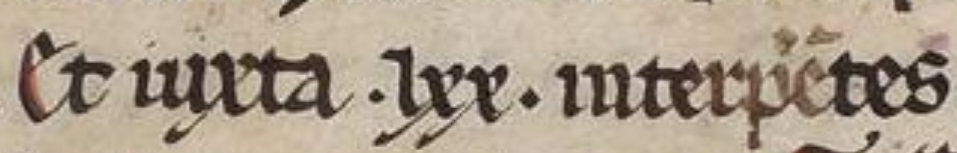 Et iuxta .lxx. interp̄etes